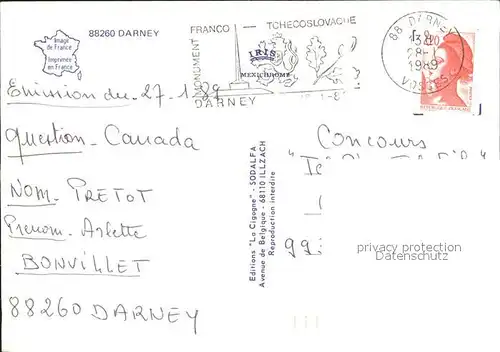 Image
de France
Imprimée
en France
88260 DARNEY
FRANCO — TCHECOSLOVAQUE
MONUMENT
IRIS
MEXICHROME
DARNEY
88 DARNEY
1989
VOSGES
Emission du 27.1.89
Question - Canada
Nom - PRETOT
Prenom - Arlette
BONVILLET
88260 DARNEY
Editions "La Cigogne" - SODALFA
Avenue de Belgique - 68110 ILLZACH
Reproduction interdite
Concours
privacy protection
Datenschutz